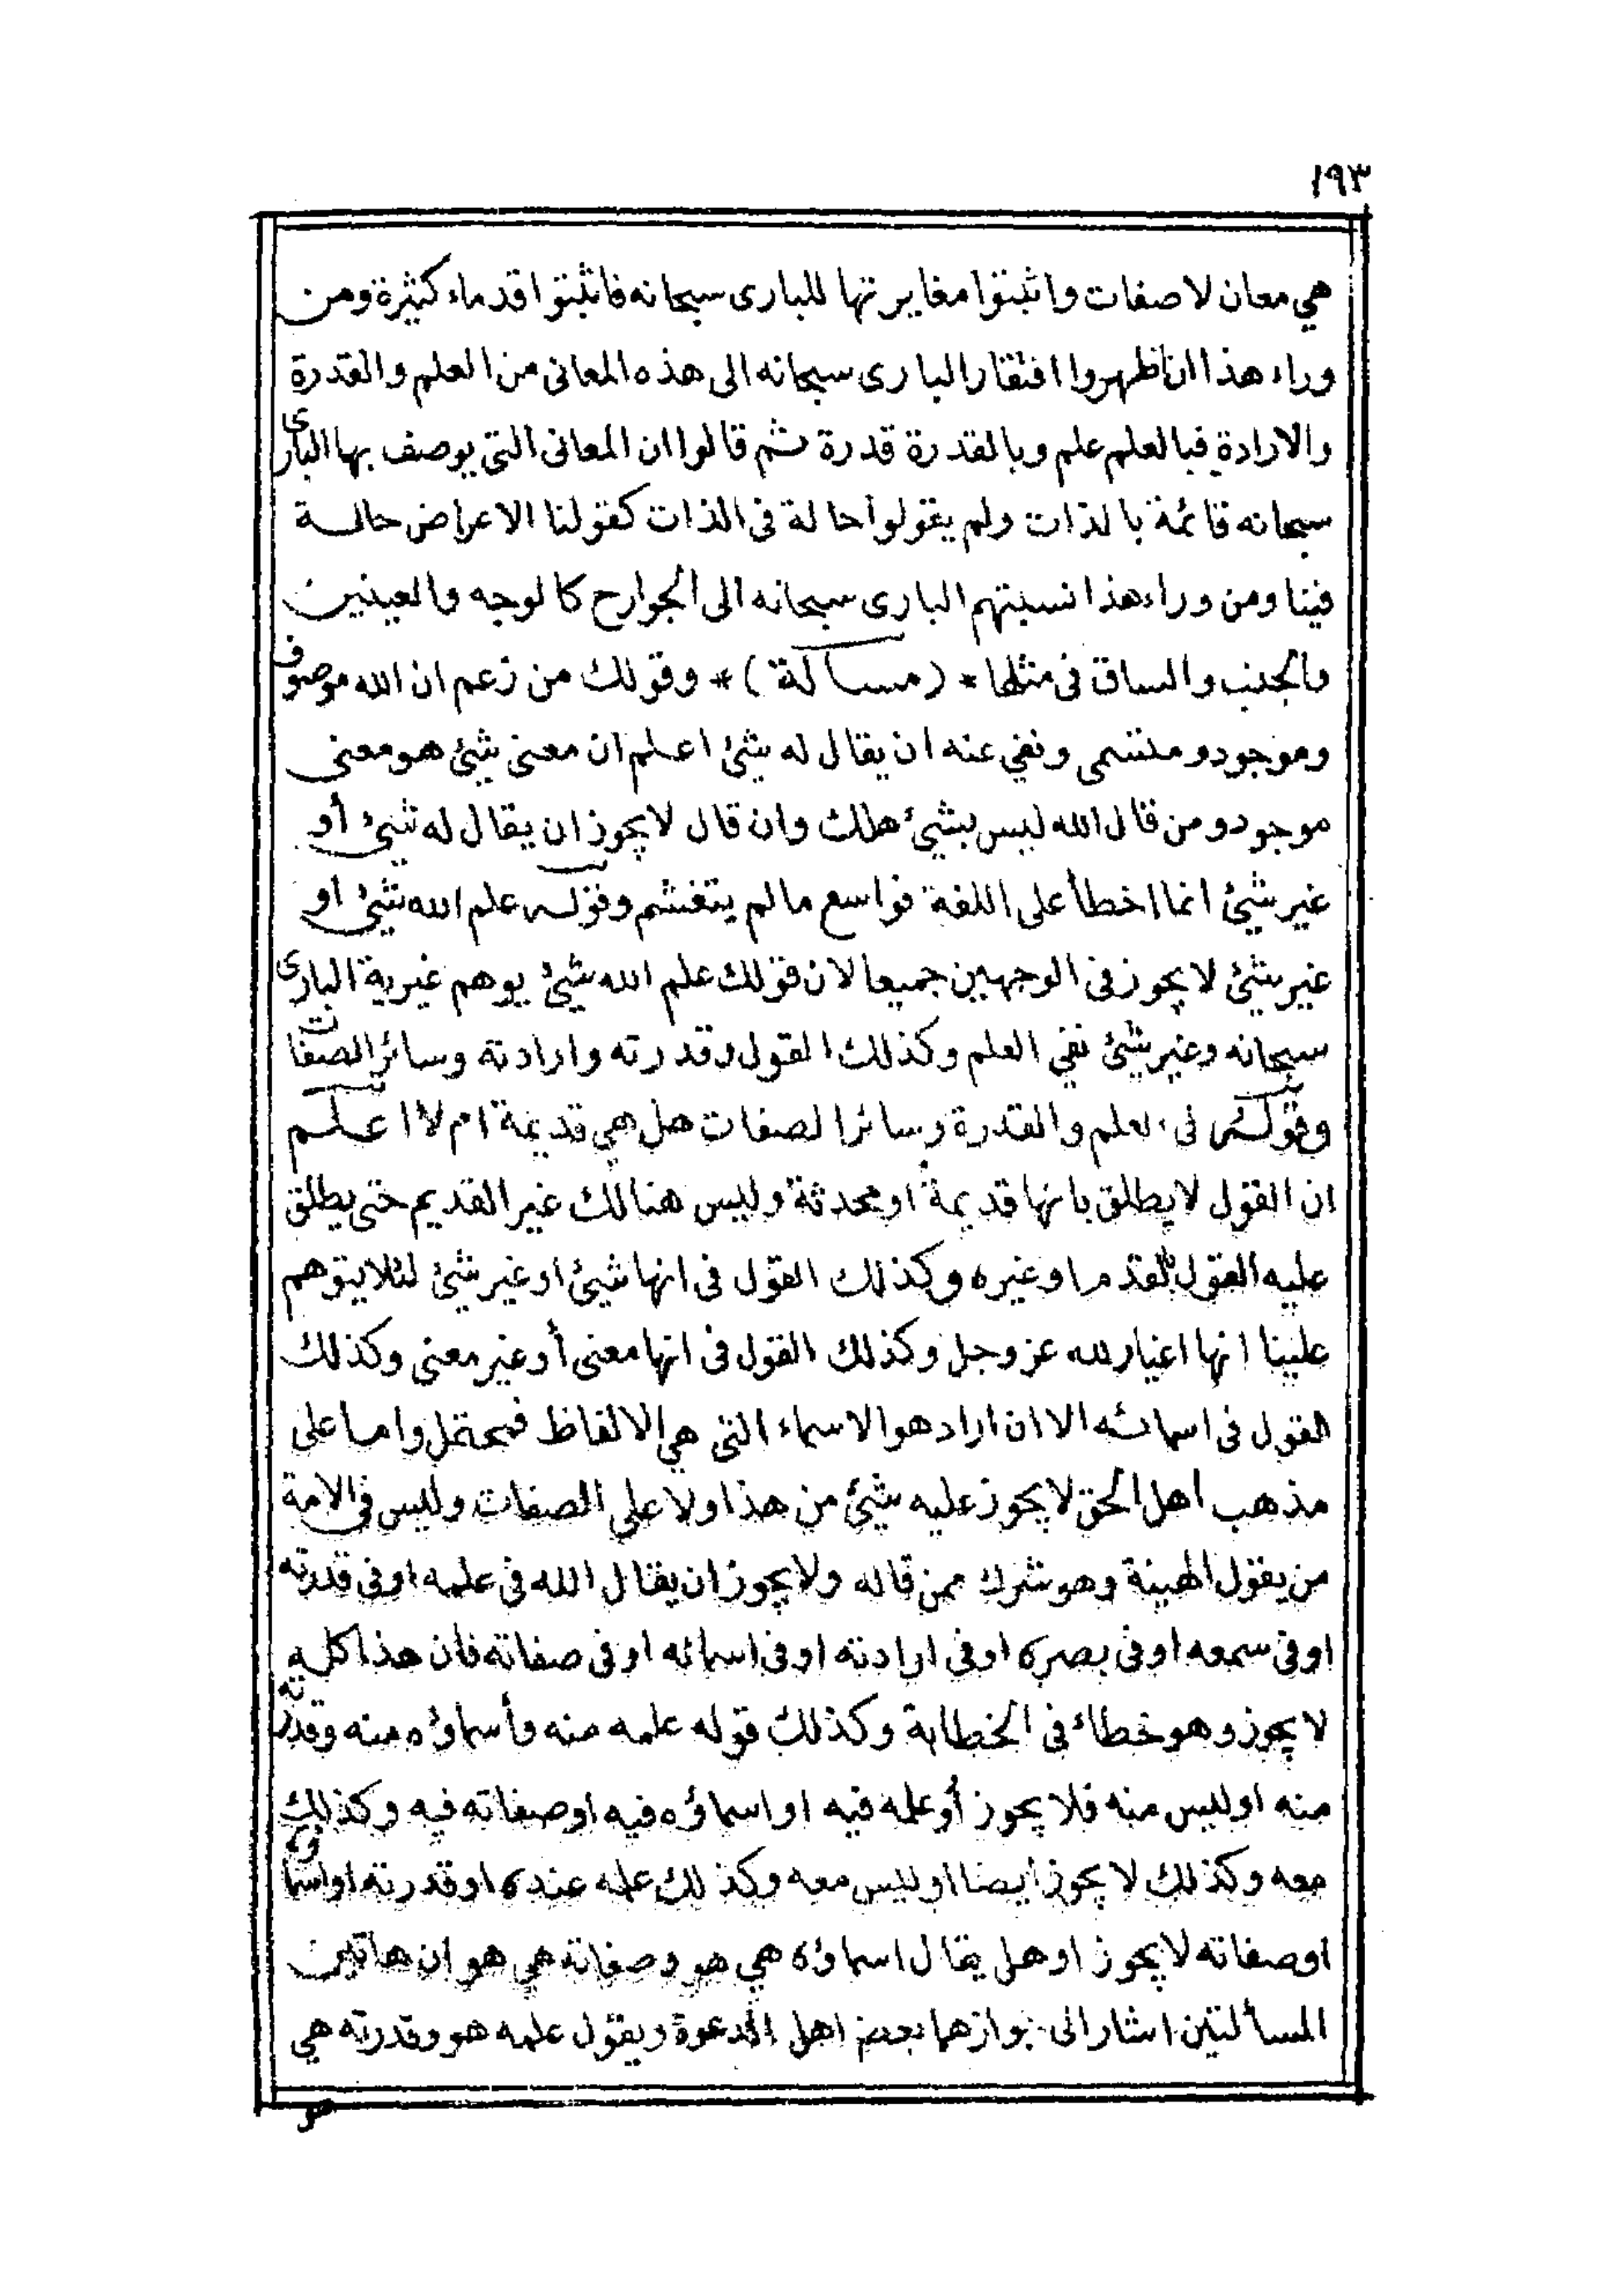 ١٩٣
هي معان لا صفات واثبتوا مغايرتها للبارى سبحانه فاثبتوا قدماء كثيرة ومن
وراء هذا ان اظهروا افتقار البارى سبحانه الى هذه المعانى من العلم والقدرة
والارادة فبالعلم علم وبالقدرة قدرة ثم قالوا ان المعانى التي يوصف بها البارى
سبحانه قائمة بالذات ولم يقولوا حالة فى الذات كقولنا الاعراض حالة
فينا ومن وراء هذا نسبتهم البارى سبحانه الى الجوارح كالوجه والعينين
والجنب والساق فى مثلها * (مسألة) * وقولك من زعم ان الله موصوف
وموجود ومتسمى ونفي عنه ان يقال له شئ اعلم ان معنى شئ هو معنى
موجود ومن قال الله ليس بشئ هلك وان قال لا يجوز ان يقال له شئ أو
غير شئ انما اخطأ على اللغة فواسع ما لم يتغشم وقوله علم الله شئ او
غير شئ لا يجوز فى الوجهين جميعا لان قولك علم الله شئ يوهم غيرية البارى
سبحانه وغير شئ نفي العلم وكذلك القول وقدرته وارادته وسائر الصفات
وقولكم فى العلم والقدرة وسائر الصفات هل هي قديمة ام لا اعلم
ان القول لا يطلق بانها قديمة او محدثة وليس هنالك غير القديم حتى يطلق
عليه القول بالقدم او غيره وكذلك القول فى انها شيئ او غير شئ لئلا يتوهم
علينا انها اغيار لله عز وجل وكذلك القول فى انها معنى أو غير معنى وكذلك
القول فى اسمائه الا ان ارادهو الاسماء التى هي الالفاظ فيحتمل واما على
مذهب اهل الحق لا يجوز عليه شئ من هذا ولا على الصفات وليس فى الامة
من يقول الهيئة وهو شرك ممن قاله ولا يجوز ان يقال الله فى علمه او فى قدرته
او فى سمعه او فى بصره او فى ارادته او فى اسمائه او فى صفاته فان هذا كله
لا يجوز وهو خطاء فى الخطابة وكذلك قوله علمه منه وأسماؤه منه وقدرته
منه او ليس منه فلا يجوز أو علمه فيه او اسماؤه فيه او صفاته فيه وكذلك
معه وكذلك لا يجوز ايضا او ليس معه وكذلك علمه عنده او قدرته او اسماؤه
او صفاته لا يجوز او هل يقال اسماؤه هي هو وصفاته هي هو ان هاتين
المسألتين اشار الى جوازهما بعض اهل الدعوة ويقول علمه هو وقدرته هي
هو